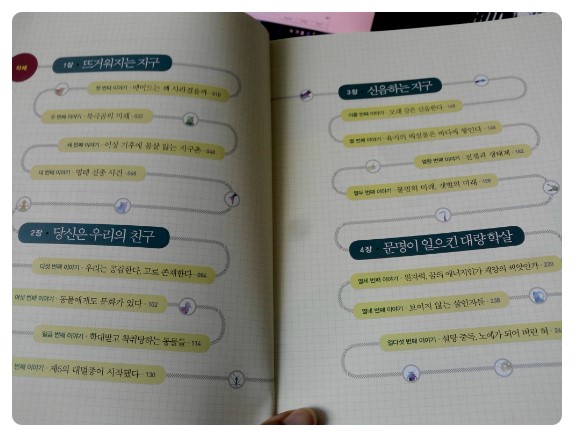 차례
1장 · 뜨거워지는 지구
첫 번째 이야기 · 매머드는 왜 사라졌을까 · 016
두 번째 이야기 · 북극곰의 미래 · 032
세 번째 이야기 · 이상 기후에 몸살 앓는 지구촌 · 048
네 번째 이야기 · 벌떼 실종 사건 · 066
2장 · 당신은 우리의 친구
다섯 번째 이야기 · 우리는 공감한다, 고로 존재한다 · 084
여섯 번째 이야기 · 동물에게도 문화가 있다 · 102
일곱 번째 이야기 · 학대받고 착취당하는 동물들 · 114
번째 이야기 · 제6의 대멸종이 시작됐다 · 130
3장 · 신음하는 지구
아홉 번째 이야기 · 모래 강은 신음한다 · 148
열 번째 이야기 · 육지의 배설물은 바다에 쌓인다 · 166
열한 번째 이야기 · 전쟁과 생태계 · 182
열두 번째 이야기 · 물범의 미래, 갯벌의 미래 · 198
4장 · 문명이 일으킨 대량 학살
열세 번째 이야기 · 원자력, 꿈의 에너지인가 재앙의 씨앗인가 · 220
열네 번째 이야기 · 보이지 않는 살인자들 · 238
열다섯 번째 이야기 · 설탕 중독, 노예가 되어 버린 혀